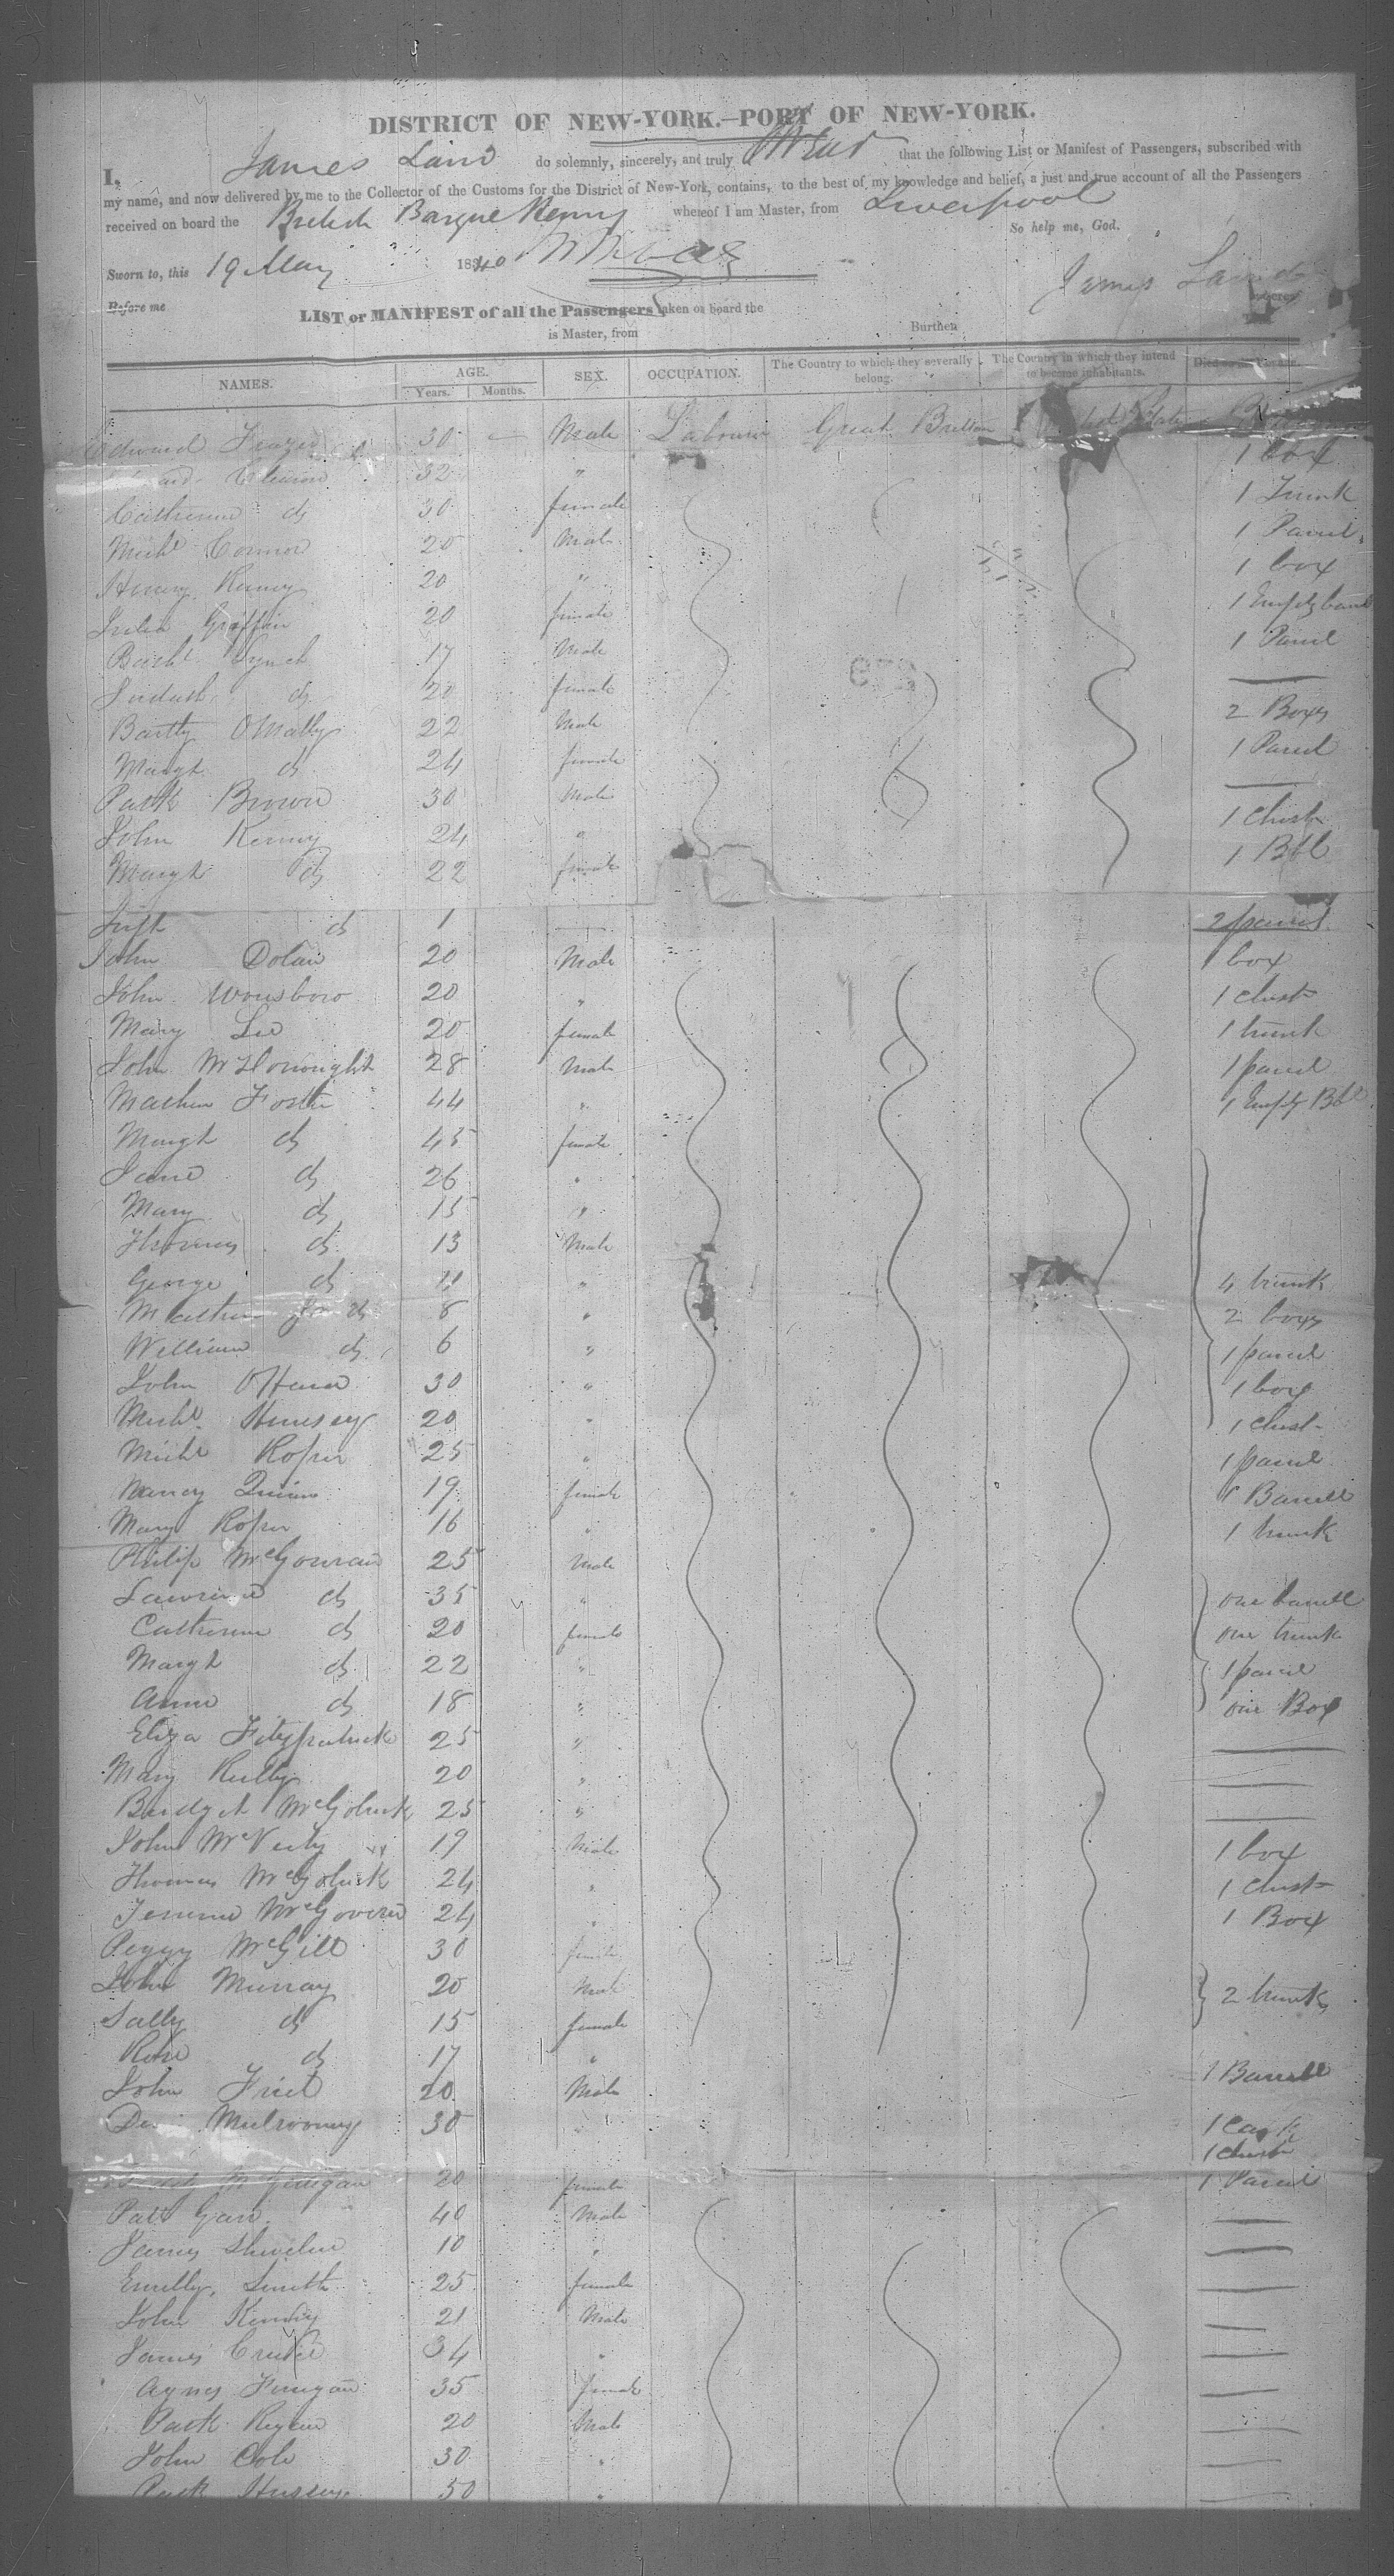 DISTRICT OF NEW-YORK.—PORT OF NEW-YORK.
I, James Laird do solemnly, sincerely, and truly swear that the following List or Manifest of Passengers, subscribed with
my name, and now delivered by me to the Collector of the Customs for the District of New-York, contains, to the best of my knowledge and belief, a just and true account of all the Passengers
received on board the British Barque Henry whereof I am Master, from Liverpool
So help me, God.
Sworn to, this 19 May 1840
James Laird
Before me
LIST or MANIFEST of all the Passengers taken on board the
is Master, from Burthen
NAMES. AGE. Years. Months. SEX. OCCUPATION. The Country to which they severally belong. The Country in which they intend to become inhabitants. Died on the Voyage.
Edward Frazer 30 Male Labourer Great Britton States
32 " 1 box
Catherine do 30 female 1 Trunk
Michl Connor 20 Male 1 Parcel
Henry Kenny 20 " 1 box
Julia Griffin 20 female 1 Empty
Lynch 17 Male 1 Parcel
do 20 female —
Bartly OMally 22 Male 2 Boxes
Margt do 24 female 1 Parcel
Patk Brown 30 Male —
John Kenny 24 " 1 Chest
Margt do 22 female 1 Bbl
do 1 2 parcels
John Dolan 20 Male 1 box
John Wonsboro 20 " 1 chest
Mary Lee 20 female 1 trunk
John McDonought 28 Male 1 parcel
Mathew Foster 44 " 1 Empty Bbl
Margt do 45 female
Jane do 26 "
Mary do 15 "
Thomas do 13 Male
George do 11 " 4 trunk
do 8 " 2 boxes
William do 6 " 1 parcel
John OHara 30 " 1 box
Michl 20 " 1 chest
Michl Roper 25 " 1 parcel
Nancy Quinn 19 female 1 Barrell
Mary Roper 16 " 1 trunk
Philip McGouran 25 Male
Lawrence do 35 " one barrell
Catherine do 20 female one trunk
Margt do 22 " 1 parcel
Anne do 18 " one Box
Eliza Fitzpatrick 25 " —
Mary Reilly 20 " —
Bridget McGolrick 25 " —
John McVeity 19 Male 1 box
Thomas McGolrick 24 " 1 chest
McGovern 24 " 1 Box
Peggy McGill 30 female
John Murray 20 Male 2 trunks
Sally do 15 female
Rose do 17 "
John Friel 20 Male 1 Barrell
Mulrooney 30 " 1 Cask
1 chest
20 female 1 Parcel
Patt 40 Male —
James 10 " —
Emilly Smith 25 female —
John Kenny 21 Male —
James 34 " —
Agnes Finigan 35 female —
Patk 20 Male —
John Cole 30 " —
Patk Hussey 50 " —